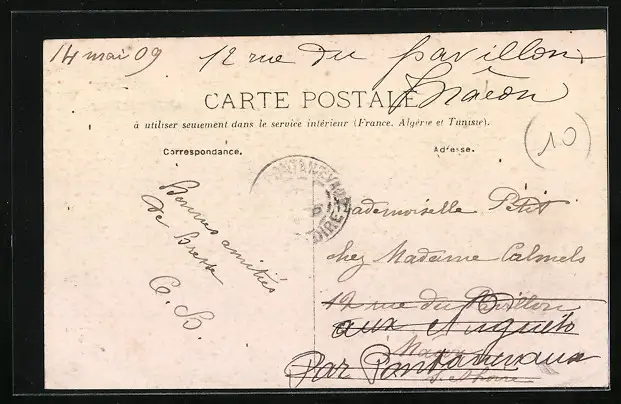 14 mai 09 12 rue du pavillon
Mâcon
CARTE POSTALE
à utiliser seulement dans le service intérieur (France, Algérie et Tunisie).
Correspondance.
Adresse.
10
Bonnes amitiés
de Bresse
C. B.
PONTANEVAUX
LOIRE
Mademoiselle Petit
chez Madame Calmels
12 rue du Pavillon
aux
Mâcon
Par Pontanevaux
S. et Loire